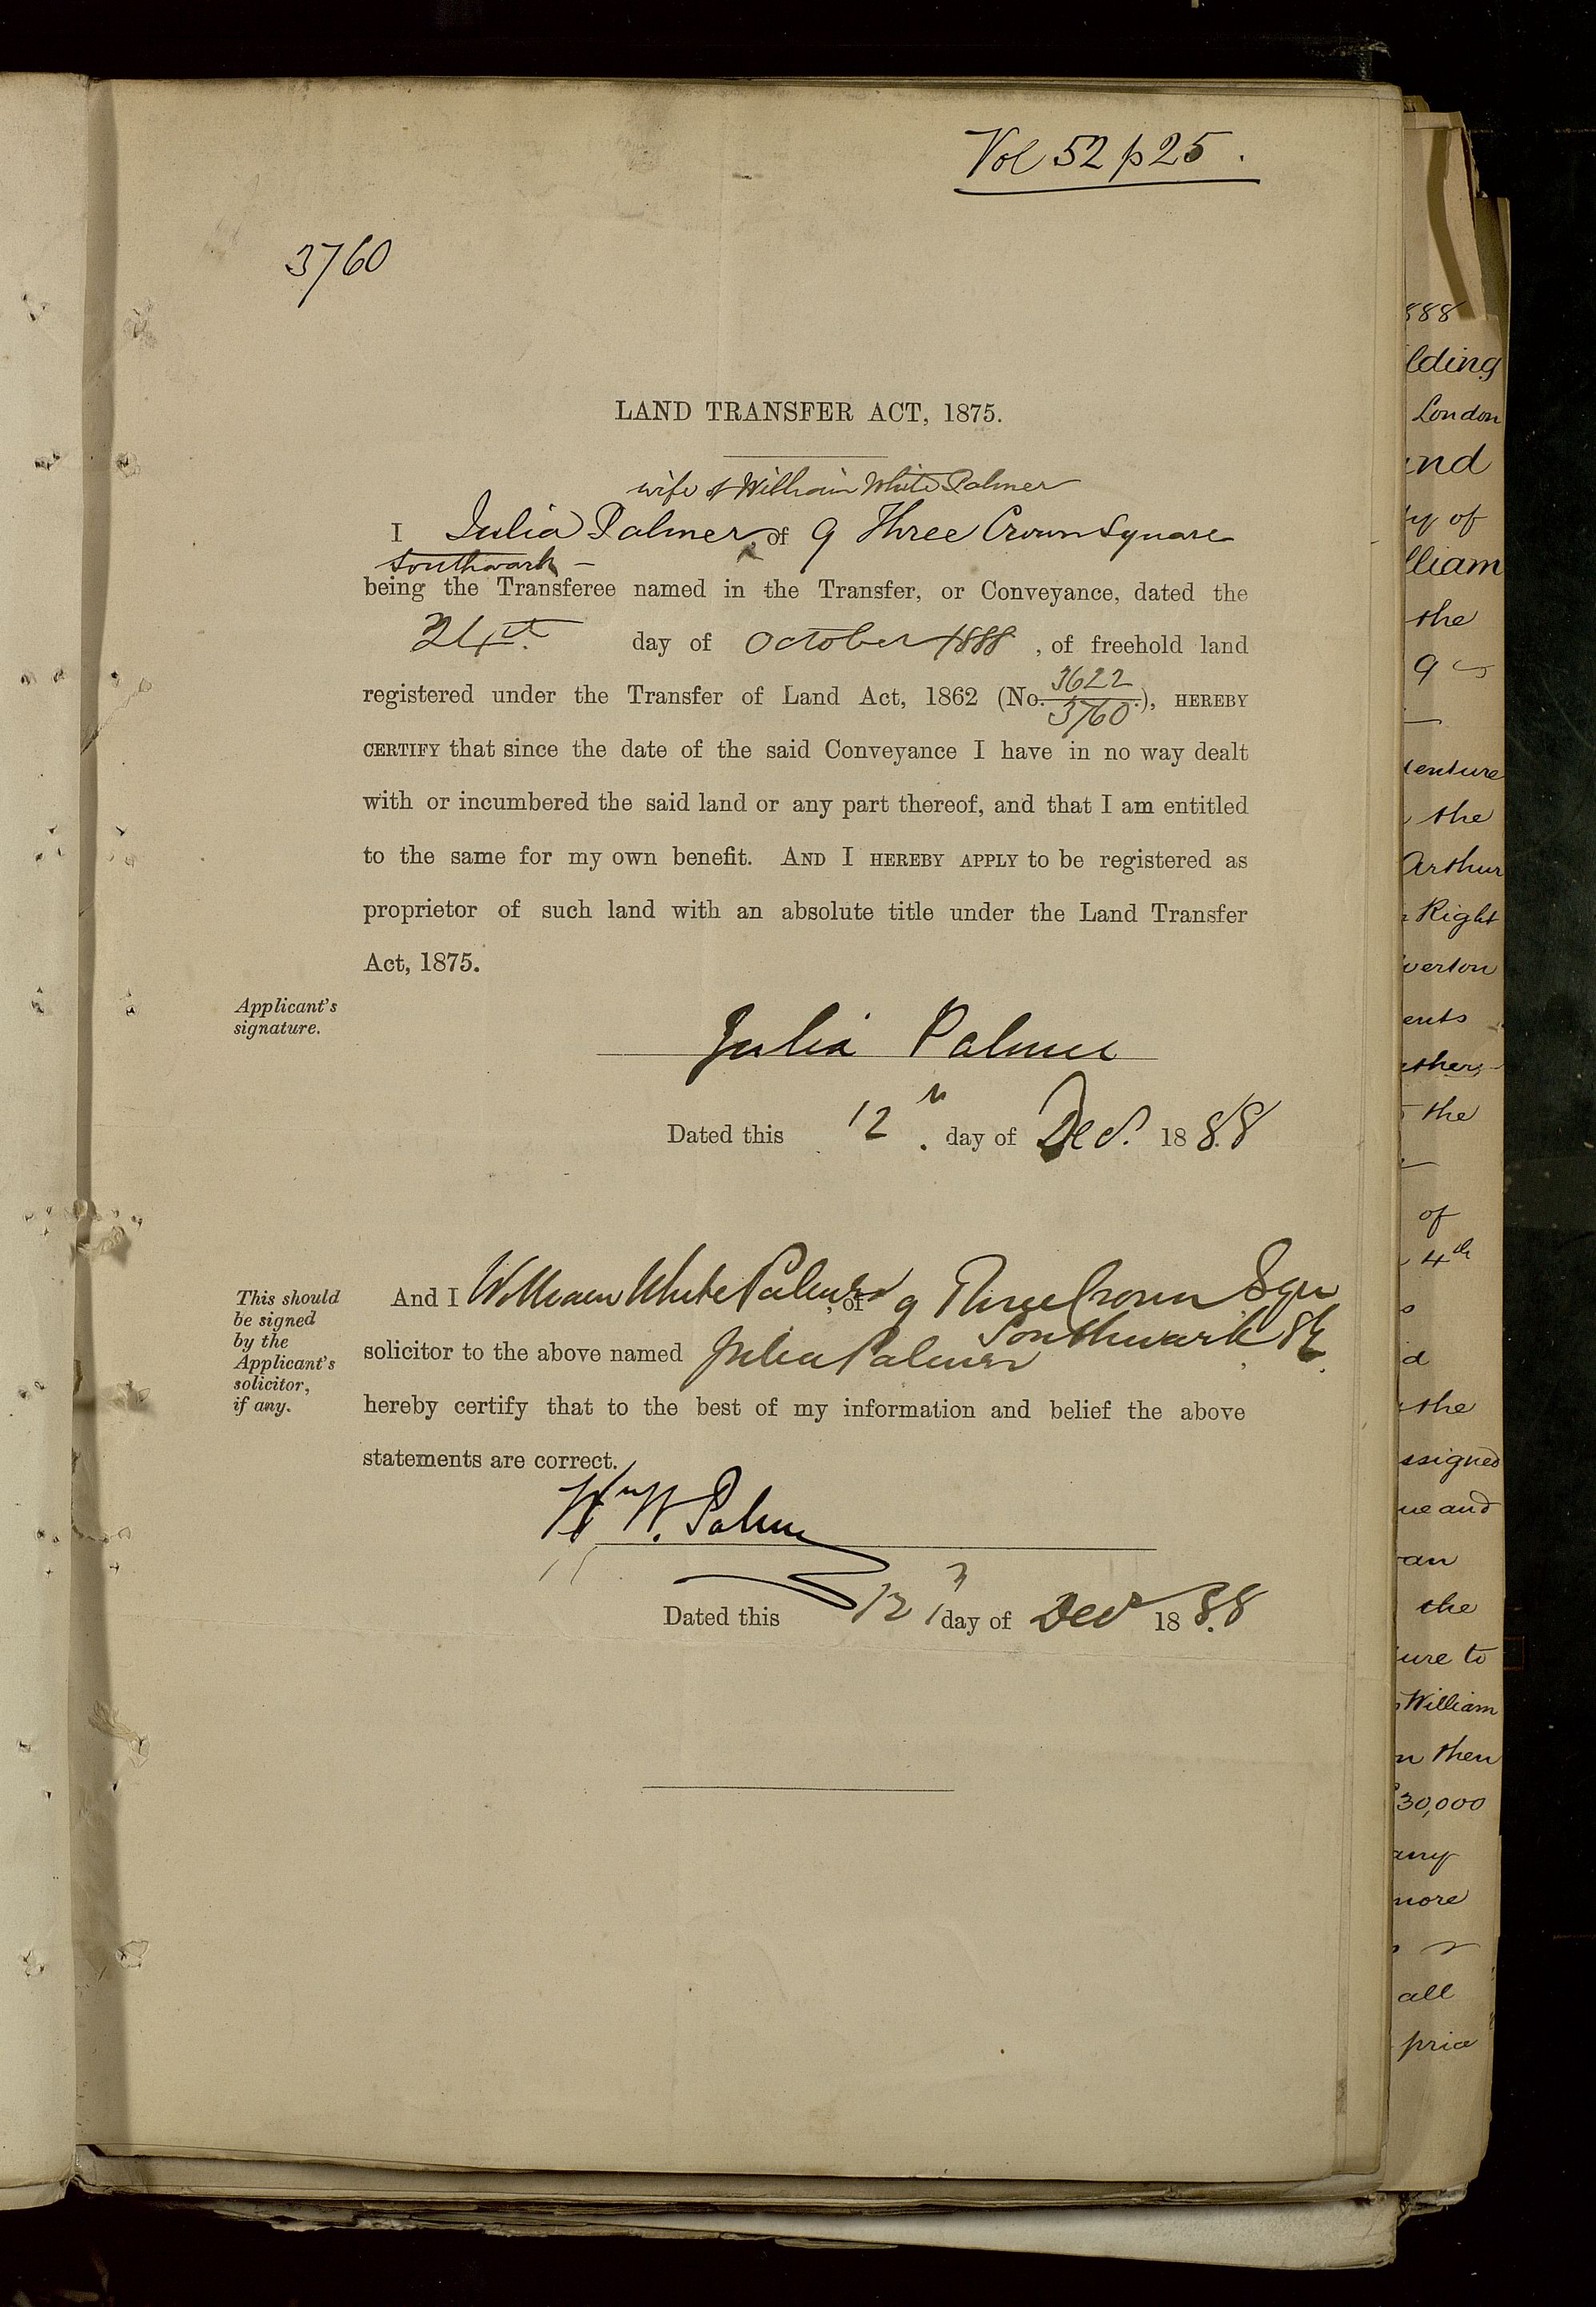 Vol 52 p 25.
3760
LAND TRANSFER ACT, 1875.
wife of William White Palmer
I Julia Palmer, of 9 Three Crown Square
Southwark –
being the Transferee named in the Transfer, or Conveyance, dated the
day of October 1888, of freehold land
registered under the Transfer of Land Act, 1862 (No. 3622
3760.), HEREBY
CERTIFY that since the date of the said Conveyance I have in no way dealt
with or incumbered the said land or any part thereof, and that I am entitled
to the same for my own benefit. AND I HEREBY APPLY to be registered as
proprietor of such land with an absolute title under the Land Transfer
Act, 1875.
Applicant's
signature.
Julia Palmer
Dated this 12th day of Decr. 1888
This should
be signed
by the
Applicant's
solicitor,
if any.
And I William White Palmer, of 9 Three Crown Sqre
Southwark SE
solicitor to the above named Julia Palmer
hereby certify that to the best of my information and belief the above
statements are correct.
Wm W. Palmer
Dated this 12 day of Decr 1888
888
lding
London
and
ty of
lliam
the
9
enture
the
Arthur
Right
verton
ents
others
the
of
4th
d
the
ssigned
ue and
an
the
ure to
William
n then
30,000
any
more
all
price